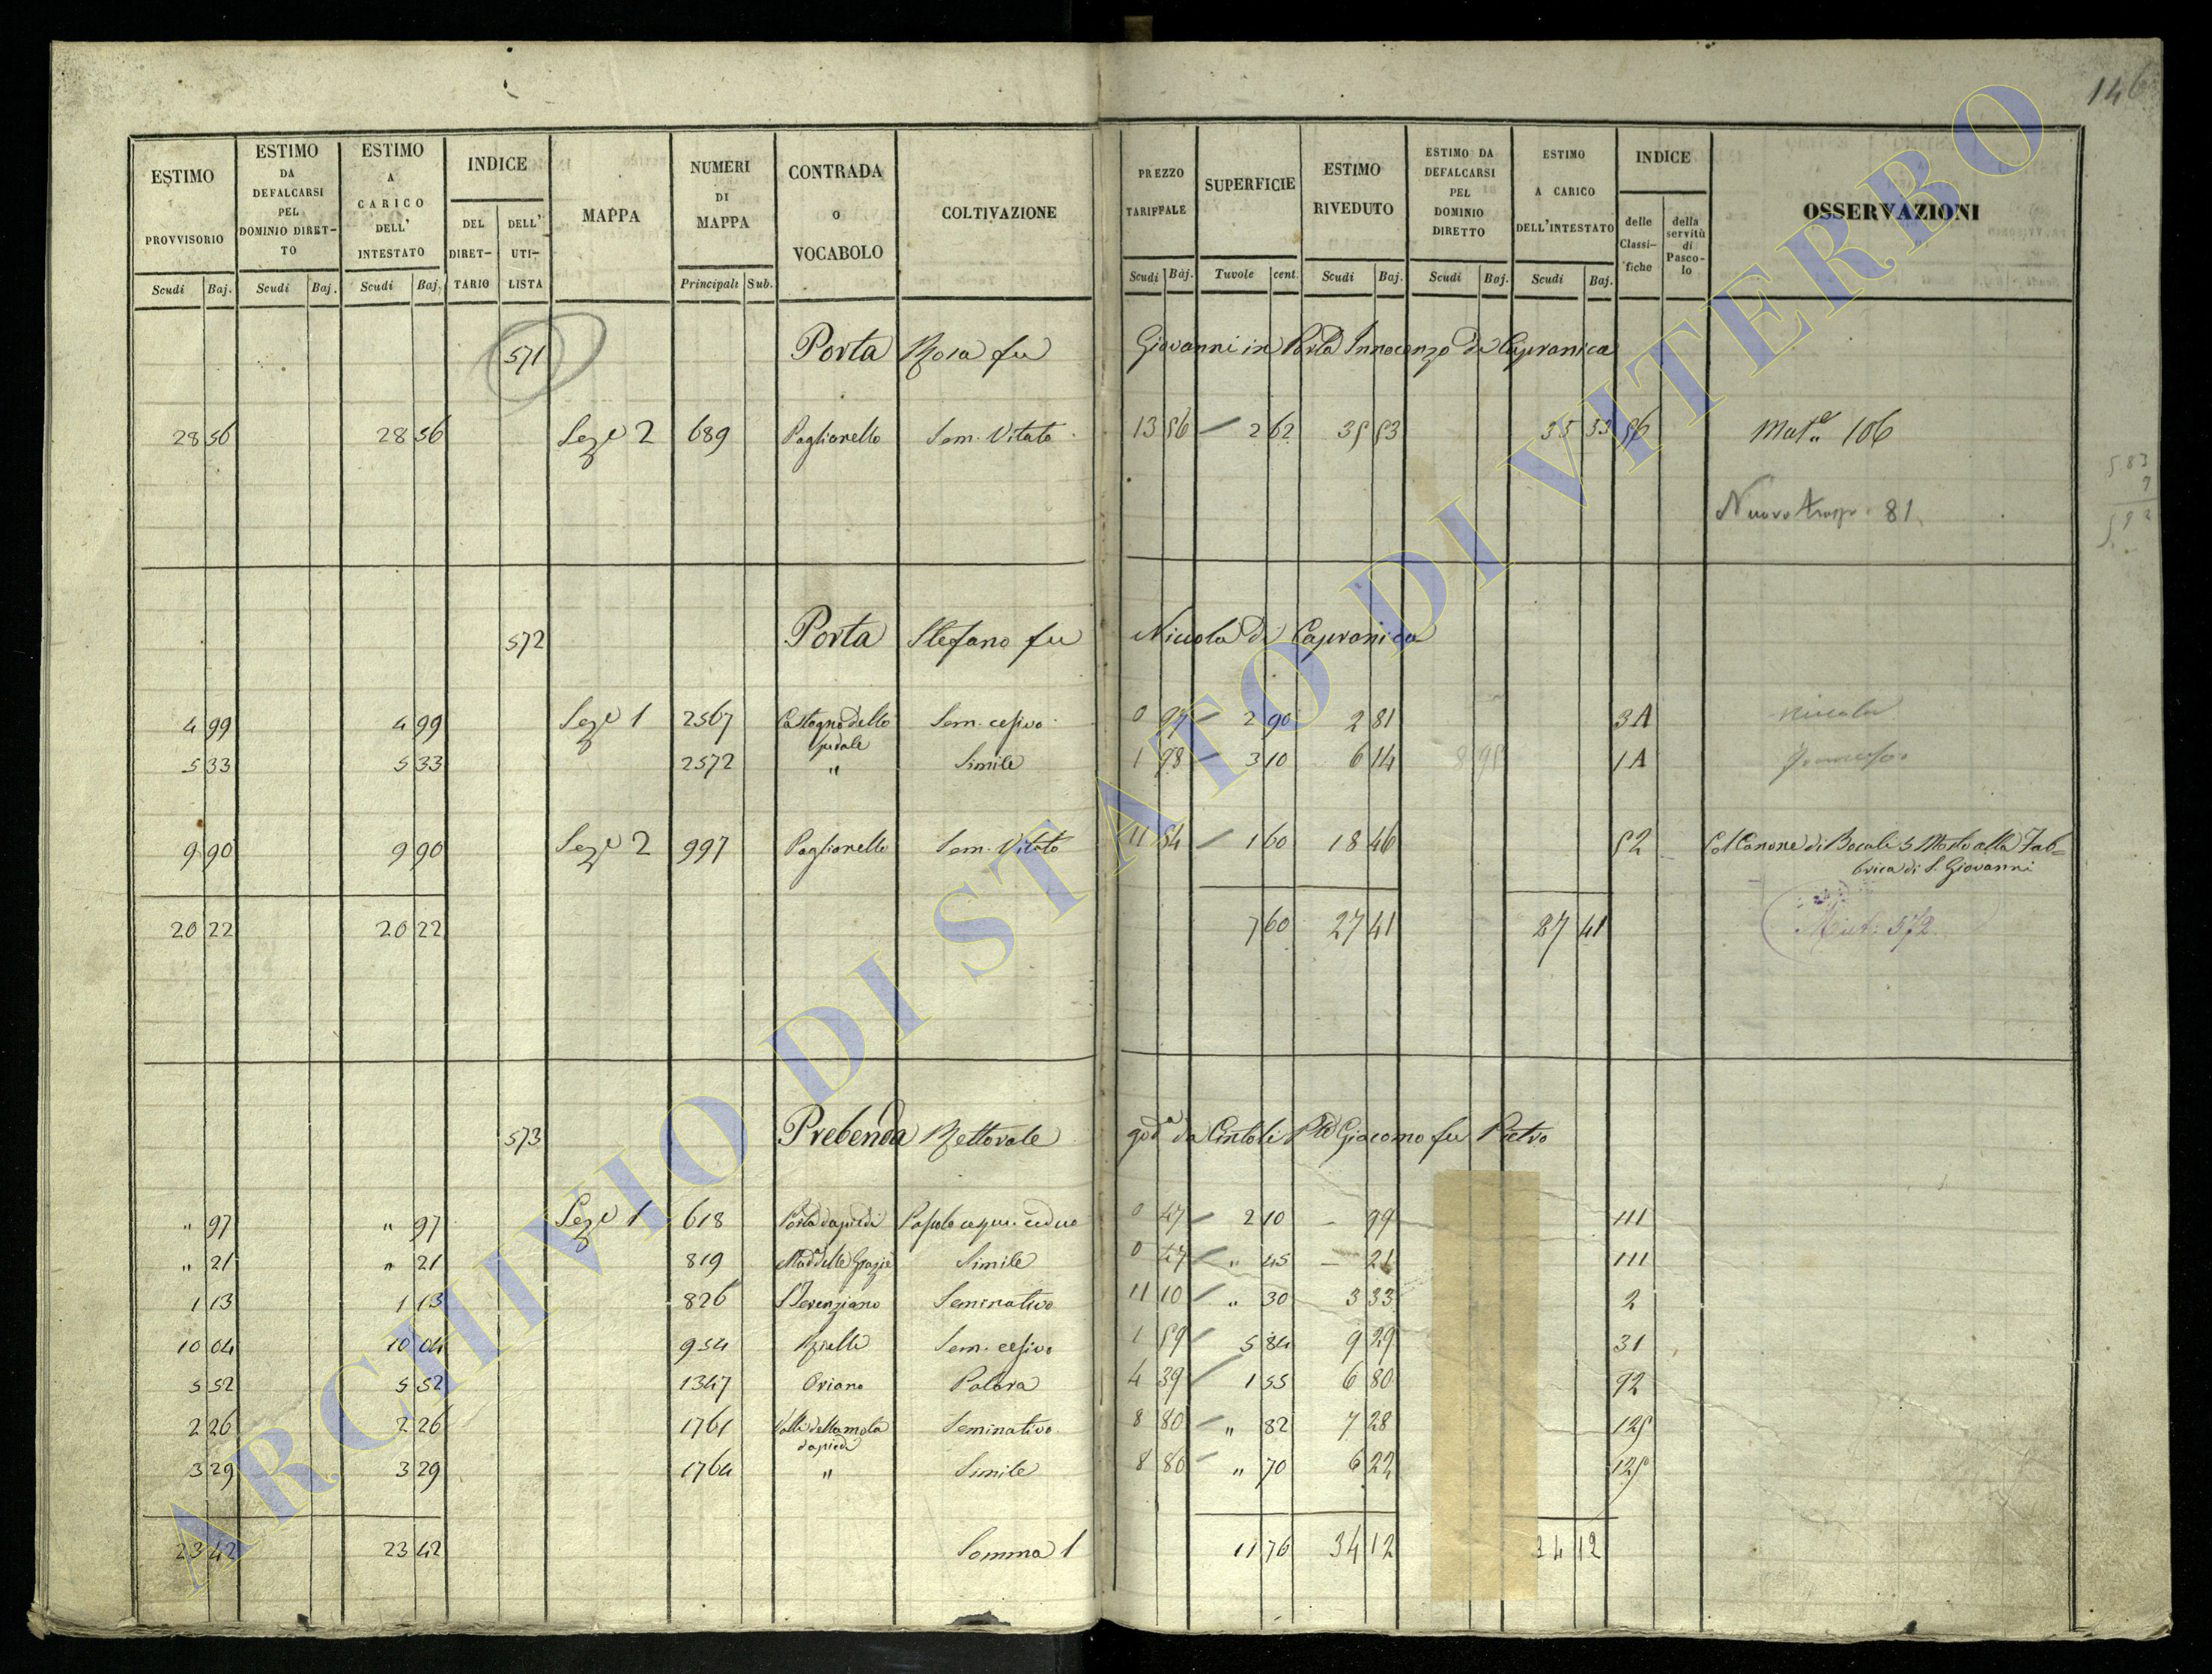 146
ESTIMO PROVVISORIO Scudi Baj.
ESTIMO DA DEFALCARSI PEL DOMINIO DIRET-TO Scudi Baj.
ESTIMO A CARICO DELL' INTESTATO Scudi Baj.
INDICE DEL DIRET-TARIO DELL' UTI-LISTA
MAPPA
NUMERI DI MAPPA Principali Sub.
CONTRADA o VOCABOLO
COLTIVAZIONE
PREZZO TARIFFALE Scudi Baj.
SUPERFICIE Tavole cent.
ESTIMO RIVEDUTO Scudi Baj.
ESTIMO DA DEFALCARSI PEL DOMINIO DIRETTO Scudi Baj.
ESTIMO A CARICO DELL'INTESTATO Scudi Baj.
INDICE delle Classi-fiche della servitù di Pasco-lo
OSSERVAZIONI
571 Porta Rosa fu Giovanni in Porta Innocenzo di Capranica
28 56 28 56 Seze 2 689 Paglianello Sem. Vitato 13 56 2 62 35 53 35 53 56 Mat.e 106
Nuovo trasp. 81
583
9
592
572 Porta Stefano fu Niccola di Capranica
4 99 4 99 Seze 1 2567 Castagno dello spedale Sem. cesivo 0 97 2 90 2 81 3A
5 33 5 33 2572 " Simile 1 98 3 10 6 14 1A
9 90 9 90 Seze 2 997 Paglianello Sem. Vitato 11 54 1 60 18 46 52 Col Canone di Bocali 5 Mosto alla Fab=
brica di S. Giovanni
20 22 20 22 7 60 27 41 27 41 Mut: 572
573 Prebenda Rettorale god.a da Cintoli Giacomo fu Pietro
" 97 " 97 Seze 1 618 Porta dapiedi Pascolo ceduo 0 47 2 10 - 99 111
" 21 " 21 819 Mad.a delle Grazie Simile 0 47 " 45 - 21 111
1 13 1 13 826 S Terenziano Seminativo 11 10 " 30 3 33 2
10 04 10 04 954 Sem. cesivo 1 59 5 84 9 29 31
5 52 5 52 1347 Oriano 4 39 1 55 6 80 92
2 26 2 26 1761 Valle della mola dapiedi Seminativo 8 80 " 82 7 28 125
3 29 3 29 1764 " Simile 8 80 " 70 6 22 125
23 42 23 42 Somma 1 11 76 34 12 34 12
ARCHIVIO DI STATO DI VITERBO